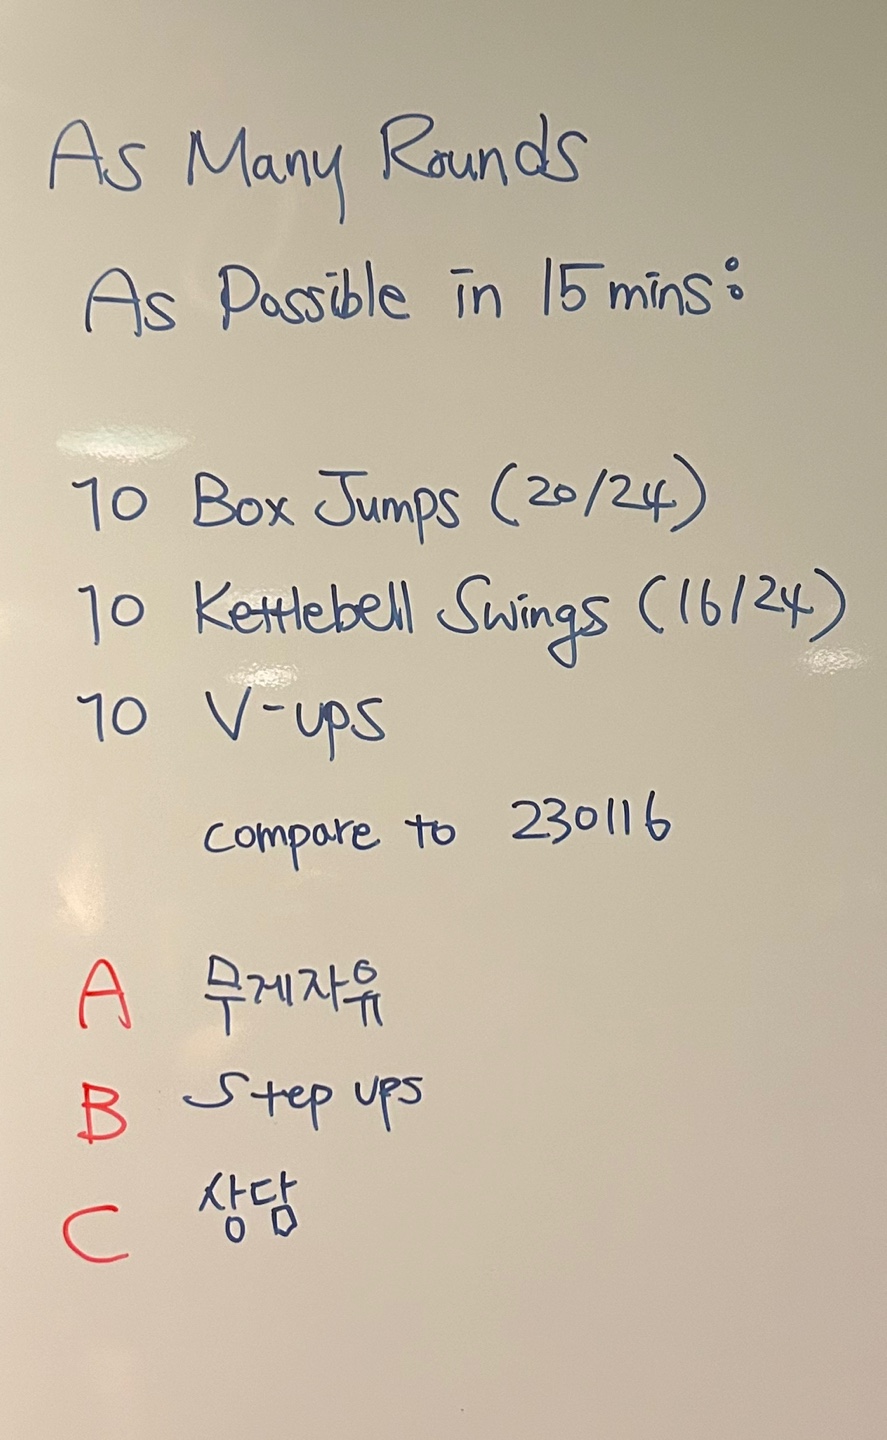 As Many Rounds
As Possible in 15 mins:
10 Box Jumps (20/24)
10 Kettlebell Swings (16/24)
10 V-ups
compare to 230116
A 무게자유
B Step ups
C 상담